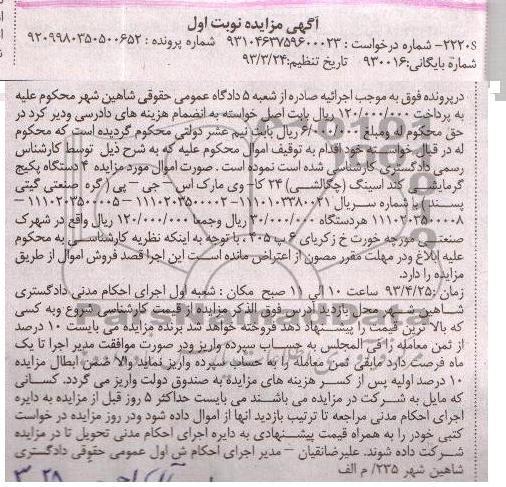 آگهی مزایده نوبت اول
۲۲۲۰S- شماره درخواست : ۹۳۱۰۴۶۳۷۵۹۶۰۰۰۲۳ شماره پرونده : ۹۲۰۹۹۸۰۳۵۰۵۰۰۶۵۲
شماره بایگانی: ۹۳۰۰۱۶ تاریخ تنظیم: ۹۳/۳/۲۴
درپرونده فوق به موجب اجرائیه صادره از شعبه ۵ دادگاه عمومی حقوقی شاهین شهر محکوم علیه
به پرداخت ۱۲۰/۰۰۰/۰۰۰ ریال بابت اصل خواسته به انضمام هزینه های دادرسی ودیر کرد در
حق محکوم له ومبلغ ۶/۰۰۰/۰۰۰ ریال بابت نیم عشر دولتی محکوم گردیده است که محکوم
له در قبال خواسته خود اقدام به توقیف اموال محکوم علیه که به شرح ذیل توسط کارشناس
رسمی دادگستری کارشناسی شده است نموده است . صورت اموال مورد مزایده ۴ دستگاه پکیج
گرمایشی کند اسینگ (چگالشی) ۲۴ کا- وی مارک اس – جی – پی ( گره صنعتی گیتی
پسند) به شماره سریال ۱۱۱۰۱۰۳۳۸۰۰۲۱ – ۱۱۱۰۲۰۳۵۰۰۰۲ – ۱۱۱۰۲۰۳۵۰۰۰۵ –
۱۱۱۰۲۰۳۵۰۰۰۰۸ هردستگاه ۳۰/۰۰۰/۰۰۰ ریال وجمعا ۱۲۰/۰۰۰/۰۰۰ ریال واقع در شهرک
صنعتی مورچه خورت خ زکریای ۶ پ ۴۰۵ ، با توجه به اینکه نظریه کارشناسی به محکوم
علیه ابلاغ ودر مهلت مقرر مصون از اعتراض مانده است این اجرا قصد فروش اموال از طریق
مزایده را دارد.
زمان :۹۳/۴/۲۵ ساعت ۱۰ الی ۱۱ صبح مکان : شعبه اول اجرای احکام مدنی دادگستری
شاهین شهر و محل بازدید آدرس فوق الذکر مزایده از قیمت کارشناسی شروع وبه کسی
که بالا ترین قیمت را پیشنهاد دهد فروخته خواهد شد برنده مزایده می بایست ۱۰ درصد
از ثمن معامله را فی المجلس به حساب سپرده واریز ودر صورت موافقت مدیر اجرا تا یک
ماه فرصت دارد مابقی ثمن معامله را به حساب سپرده واریز نماید والا ضمن ابطال مزایده
۱۰ درصد اولیه پس از کسر هزینه های مزایده به صندوق دولت واریز می گردد. کسانی
که مایل به شرکت در مزایده می باشند می بایست حداکثر ۵ روز قبل از مزایده به دایره
اجرای احکام مدنی مراجعه تا ترتیب بازدید انها از اموال داده شود ودر روز مزایده در خواست
کتبی خودر را به همراه قیمت پیشنهادی به دایره اجرای احکام مدنی تحویل تا در مزایده
شرکت داده شوند. علیرضانقیان – مدیر اجرای احکام ش اول عمومی حقوقی دادگستری
شاهین شهر ۲۳۵/ م الف